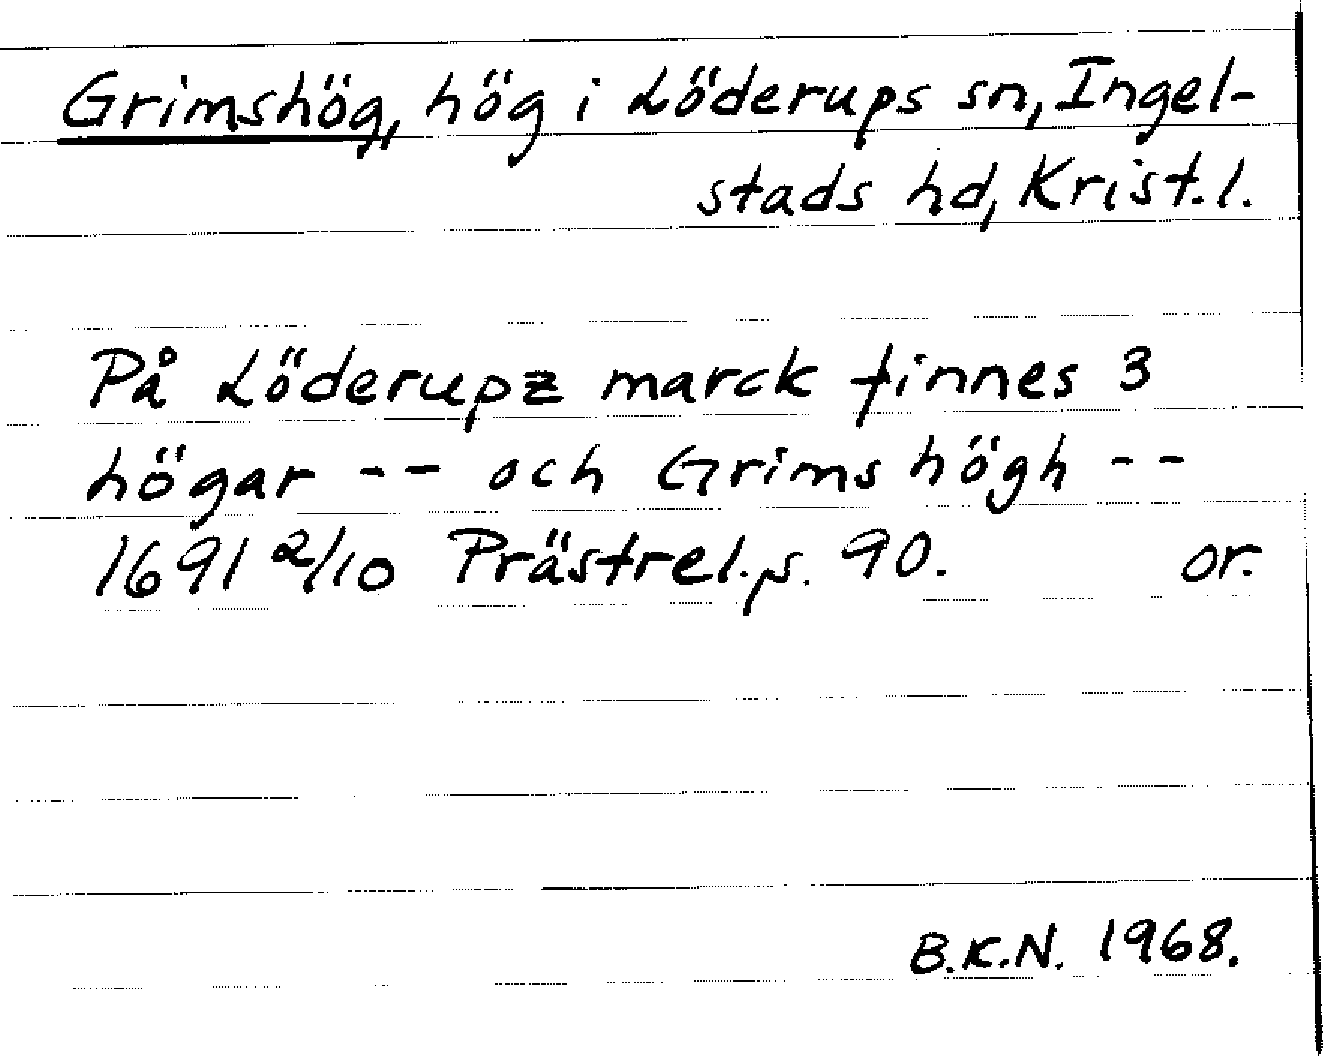 Grimshög, hög i Löderups sn, Ingel-
stads hd, Krist. l.
På Löderupz marck finnes 3
högar -- och Grims högh --
1691 2/10 Prästrel. s. 90. or.
B.K.N. 1968.